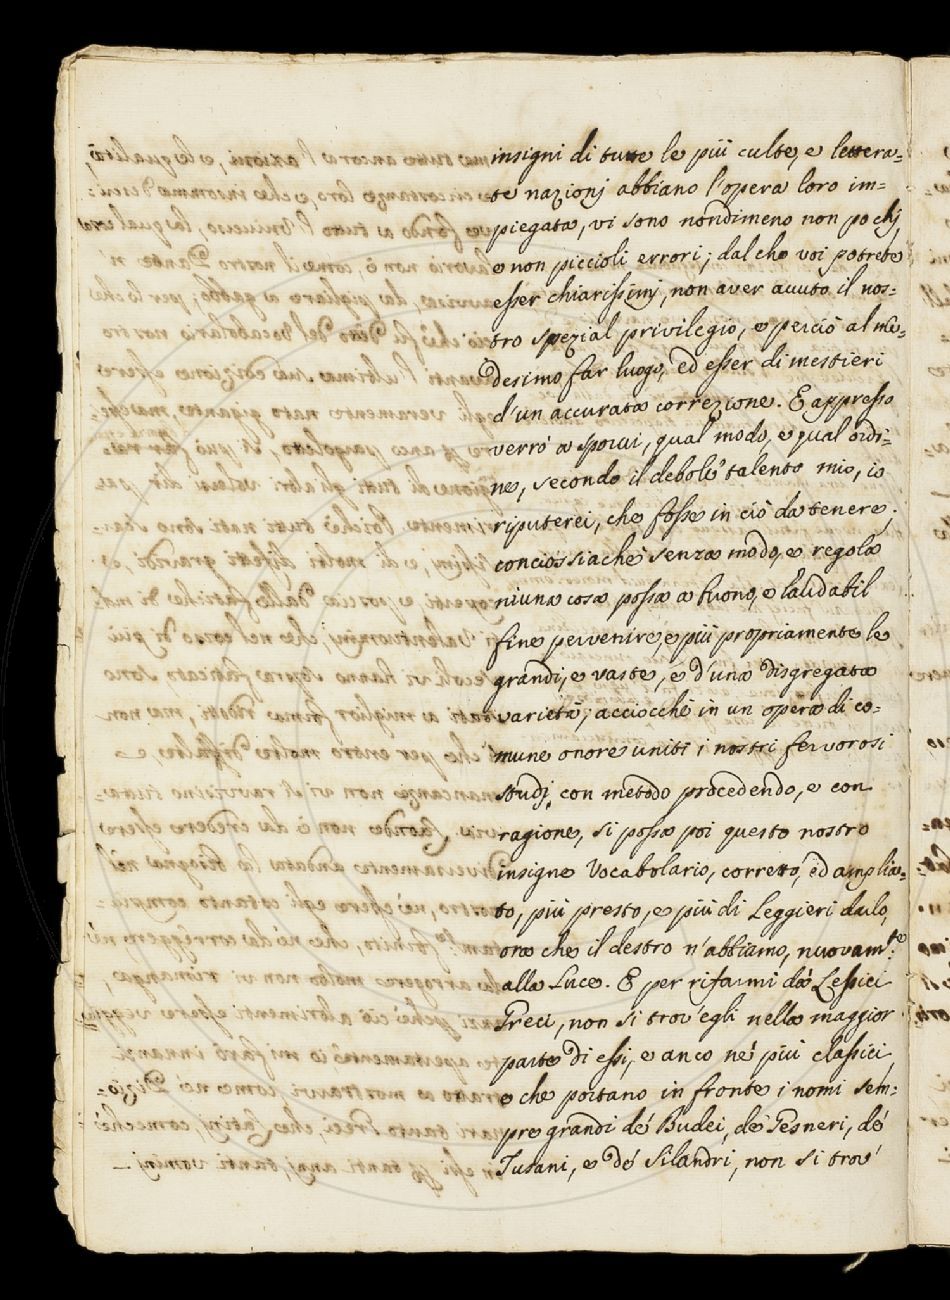 insigni di tutte le più culte, e lettera=
te nazionj abbiano l'opera loro im=
piegata, vi sono nondimeno non pochj,
e non piccioli errori; dal che voi potrete
esser chiarissimj, non aver avuto il nos=
tro spezial privilegio, e perciò al me=
desimo far luogo, ed esser di mestieri
d'un accurata correzione. E appresso
verrò a sporvi, qual modo, e qual ordi=
ne, secondo il debole talento mio, io
riputerei, che fosse in ciò da tenere;
conciossiachè senza modo, e regola
niuna cosa possa a buono, e laudabil
fine pervenire, e più propriamente le
grandi, e vaste, e d'una disgregata
varietà; acciocchè in un opera di co=
mune onore uniti i nostri fervorosi
studj, con metodo procedendo, e con
ragione, si possa poi questo nostro
insigne Vocabolario, corretto, ed amplia=
to, più presto, e più di Leggieri darlo,
ora che il destro n'abbiamo, nuovam.te
alla Luce. E per rifarmi da' Lessici
Greci, non si trov'egli nella maggior
parte di essi, e anco ne' più classici
e che portano in fronte i nomi sem=
pre grandi de' Budei, de' Gesneri, de'
Tusani, e de' Silandri, non si trov'